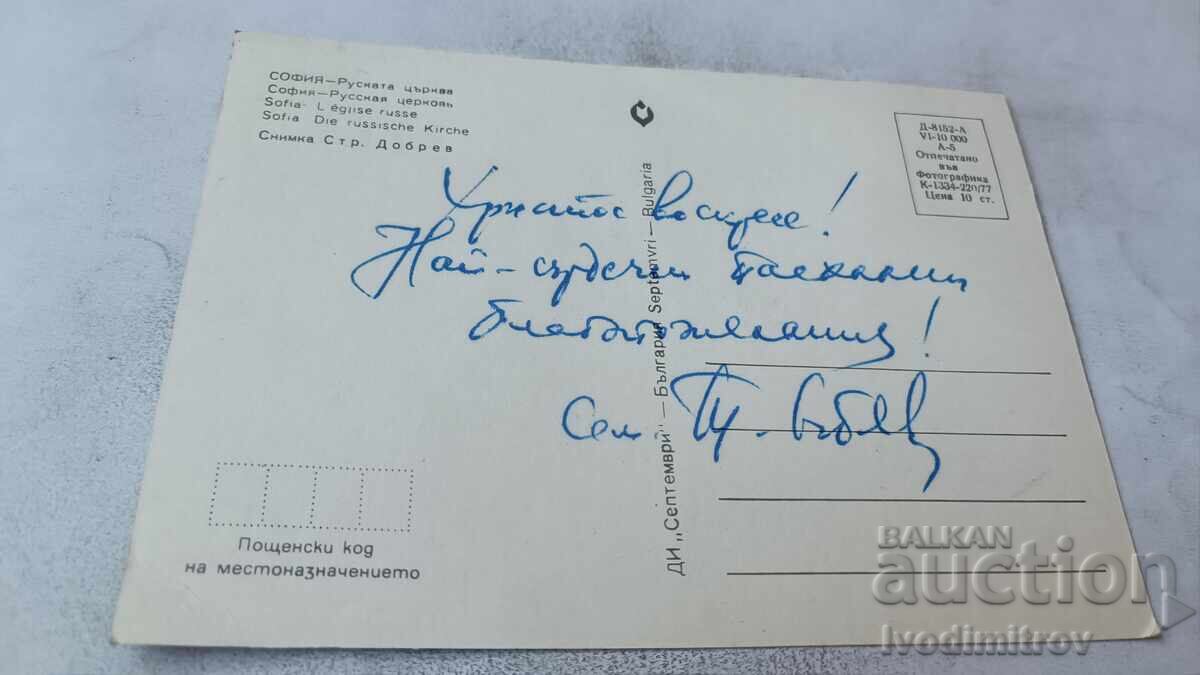 СОФИЯ—Руската църква
София—Русская церковь
Sofia- L église russe
Sofia Die russische Kirche
Снимка Стр. Добрев
Д-8152-А
VI-10 000
А-5
Отпечатано
във
Фотографика
К-1334-220/77
Цена 10 ст.
Христос воскресе!
Най-сърдечни пасхални
благопожелания!
Сем.
ДИ „Септември" — България Septemvri — Bulgaria
Пощенски код
на местоназначението
BALKAN
auction
Ivodimitrov